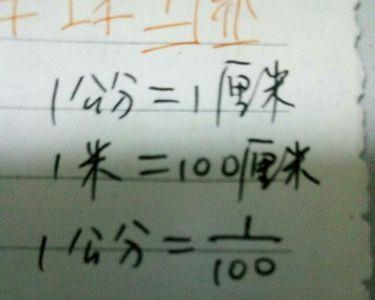 1公分=1厘米
1米=100厘米
1公分=1/100